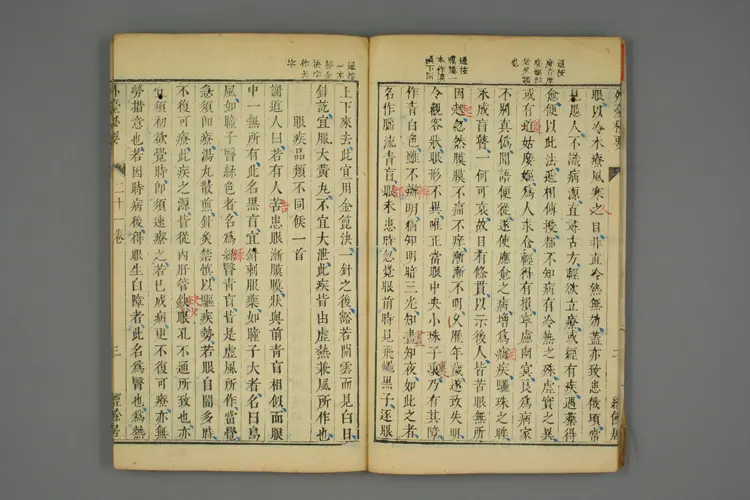 外臺秘要
眼以冷水療風寒之目非直冷熱無効蓋亦致患俄頃常
見愚人不識病源直尋古方輕欲立療或經有疾遇藥得
愈便以此法遞相傳授都不知病有冷熱之殊虛實之異
或有道姑媒媼為人水食輕得有損寧慮南冥良為病家
不別真偽聞語便從遂使應愈之病增為痼疾驪珠之眸
永成盲瞽一何可哀故曰有條貫以示後人皆苦眼無所
因起忽然膜膜不痛不痒漸漸不明久歷年歲遂致失明
令觀容狀眼形不異唯正當眼中央小珠子裏乃有其障
作青白色雖不辨明物猶知明暗三光知晝知夜如此之者
名作腦流青盲眼未患時忽覺眼前時見飛蠅黑子逐眼
上下來去此宜用金篦決一針之後豁若開雲而見白日
針訖宜服大黃丸不宜大泄此疾皆由虛熱兼風所作也
眼疾品類不同候一首
謝道人曰若有人苦患眼漸漸膜膜狀與前青盲相似而眼
中一無所有此名黑盲宜針刺服藥如瞳子大者名曰烏
風如瞳子翳綠色者名為綠翳青盲皆是虛風所作當覺
急須即療湯丸散煎針灸禁慎以驅疾勢若眼自闇多時
不復可療此疾之源皆從內肝管缺眼孔不通所致也亦
須初欲覺時即須速療之若已成病更不復可療亦無
勞措意也若因時病後得眼生白障者此名為翳也為熱
外臺秘要 二十一卷 三 經餘居